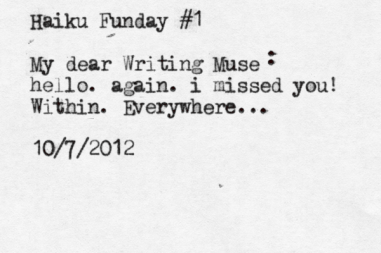 Haiku Funday #1
My dear Writing Muse :
hello. again. i missed you!
Within. Everywhere...
10/7/2012